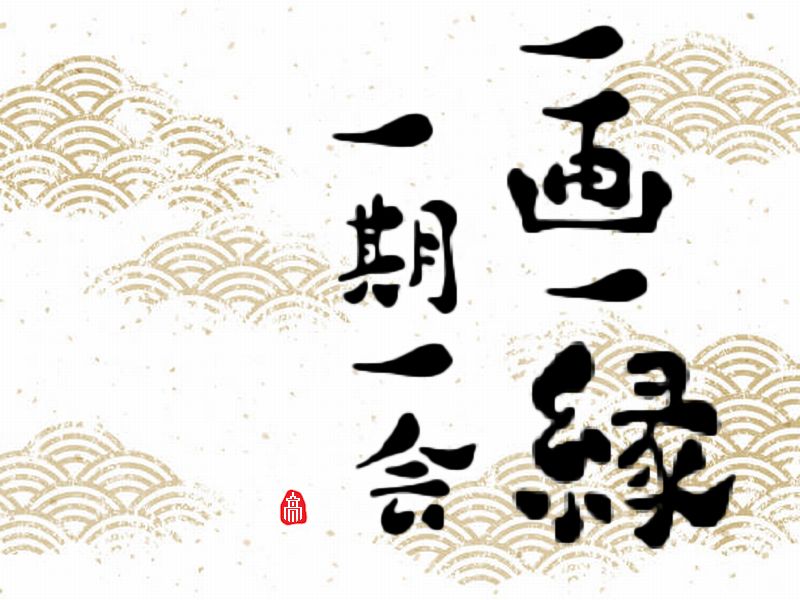 一画一縁
一期一会
高